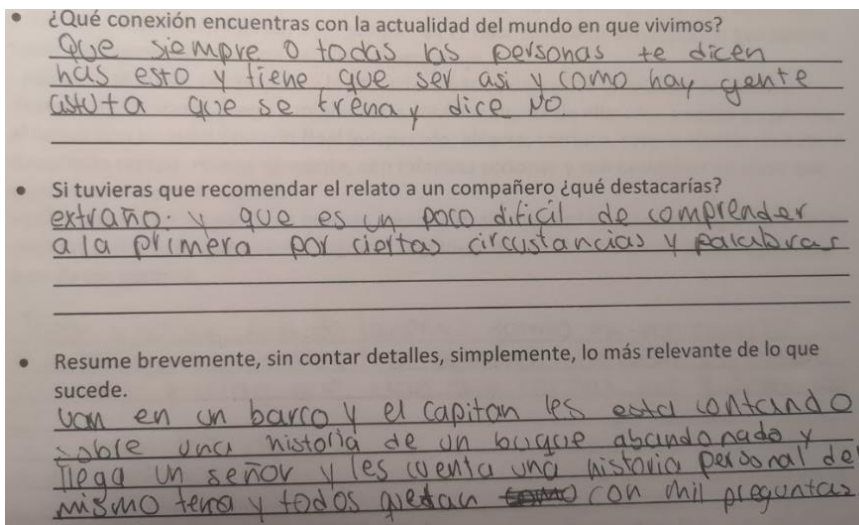 ¿Qué conexión encuentras con la actualidad del mundo en que vivimos?
Que siempre o todas las personas te dicen
has esto y tiene que ser asi y como hay gente
astuta que se frena y dice NO.
Si tuvieras que recomendar el relato a un compañero ¿qué destacarías?
extraño: y que es un poco dificil de comprender
a la primera por ciertas circustancias y palabras
Resume brevemente, sin contar detalles, simplemente, lo más relevante de lo que
sucede.
van en un barco y el capitan les esta contando
sobre una historia de un buque abandonado y
llega un señor y les cuenta una historia personal del
mismo tema y todos quedan como con mil preguntas